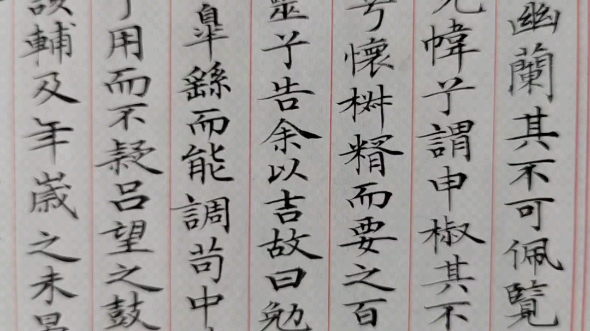 幽蘭其不可佩覽
充幃兮謂申椒其不
兮懷椒糈而要之百
靈兮告余以吉故曰勉
皐繇而能調苟中
丁用而不疑呂望之鼓
該輔及年歲之未晏